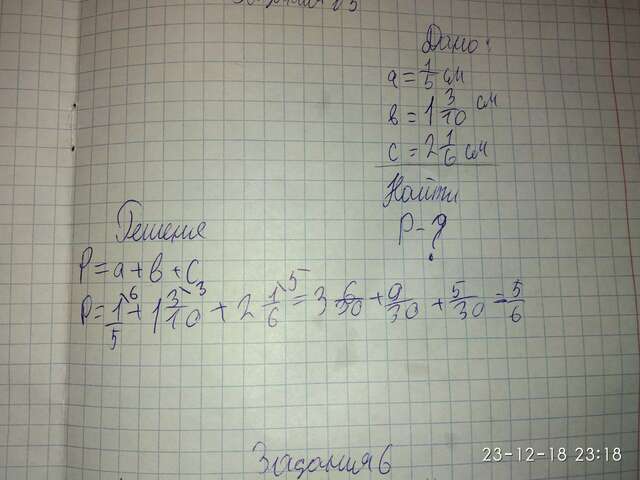 Дано:
a = 1/5 см
в = 1 3/10 см
c = 2 1/6 см
Найти
P - ?
Решения
P = a + в + c
P = 1/5\6 + 1 3/10\3 + 2 1/6\5 = 3 6/30 + 9/30 + 5/30 = 5/6
Задания 6
23-12-18 23:18